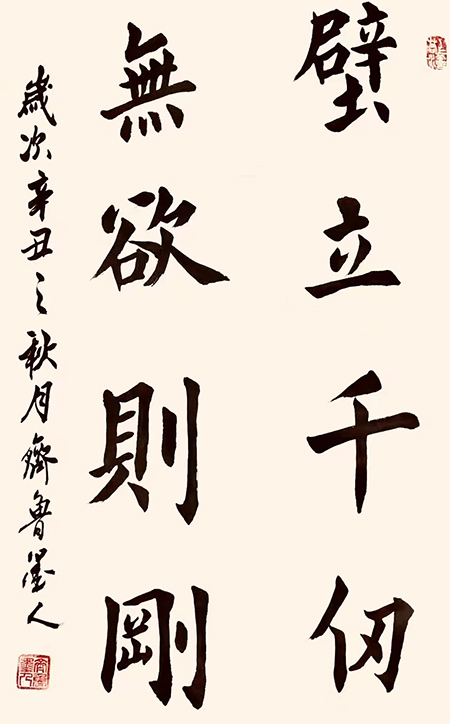 壁立千仞
無欲則剛
歲次辛丑之秋月齊魯墨人